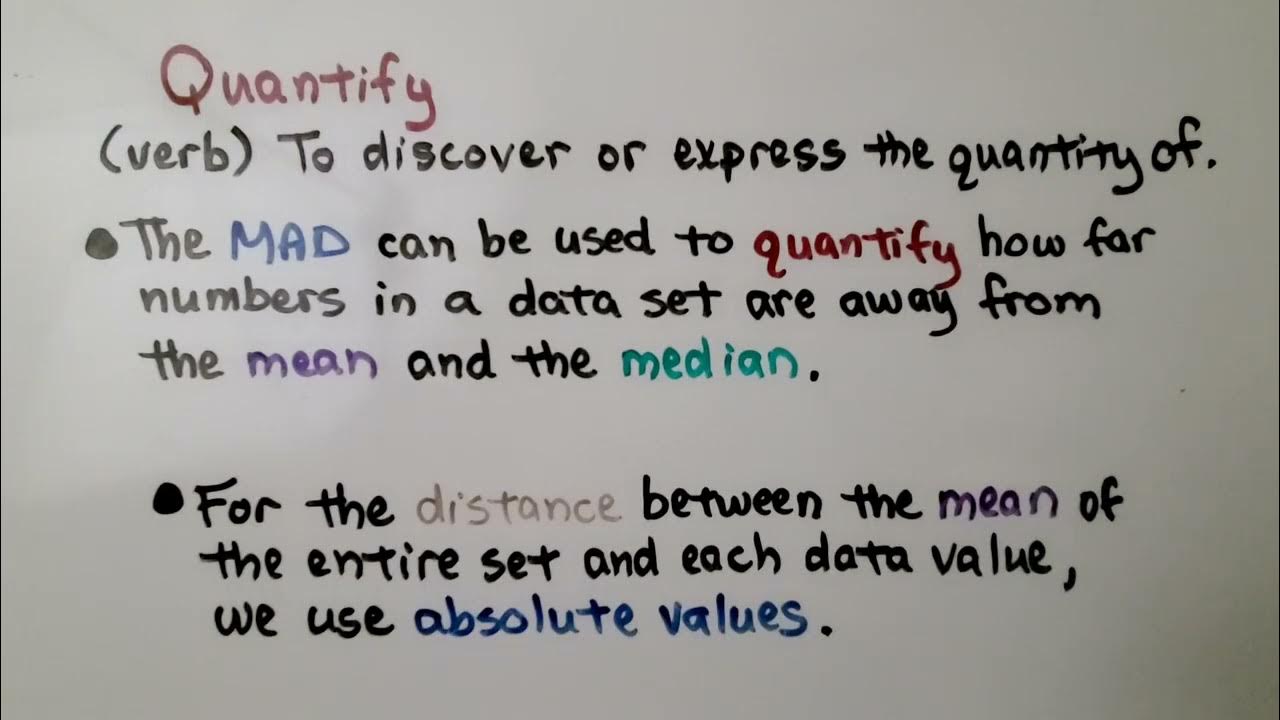 Quantify
(verb) To discover or express the quantity of.
● The MAD can be used to quantify how far
numbers in a data set are away from
the mean and the median.
● For the distance between the mean of
the entire set and each data value,
we use absolute values.